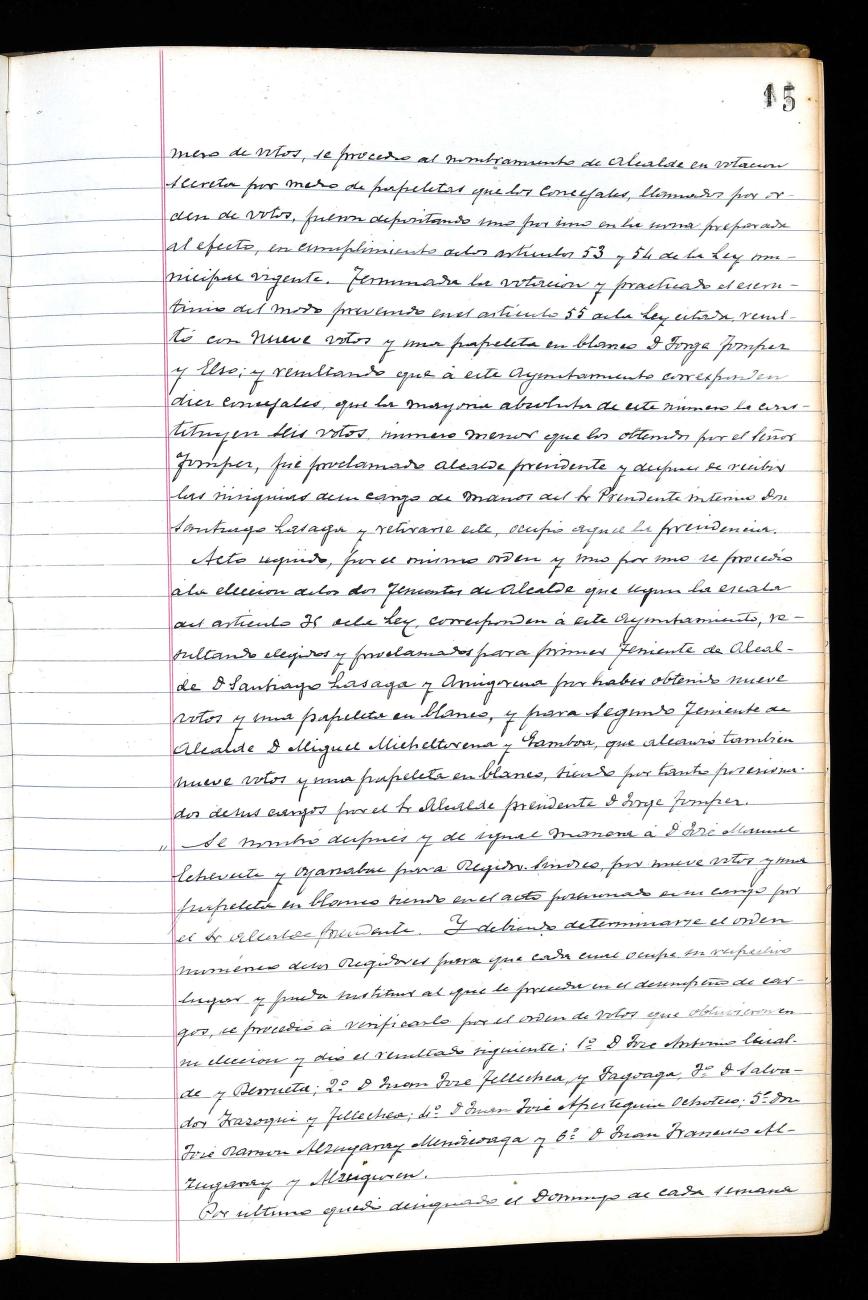 15
mero de votos, se procedio al nombramiento de Alcalde en votacion
secreta por medio de papeletas que los Concejales, llamados por or-
den de votos, fueron depositando uno por uno en la urna preparada
al efecto, en cumplimiento de los articulos 53 y 54 de la Ley mu-
nicipal vigente. Terminada la votacion y practicado el escru-
tinio del modo prevenido en el artículo 55 de la Ley citada, resul-
tó con nueve votos y una papeleta en blanco D Jorge Jomper
y Elso; y resultando que á este Ayuntamiento corresponden
diez concejales, que la mayoria absoluta de este número la cons-
tituyen seis votos, número menor que los obtenidos por el Señor
Jomper, fué proclamado alcalde presidente y despues de recibir
las insignias de su cargo de manos del Sr Presidente interino Don
Santiago Lasaga y retirarse este, ocupó aquel la presidencia.
Acto seguido, por el mismo orden y uno por uno se procedio
á la eleccion de los dos Tenientes de Alcalde que segun la escala
del articulo 35 de la Ley, corresponden á este Ayuntamiento, re-
sultando elegidos y proclamados para primer Teniente de Alcal-
de D Santiago Lasaga y Amigorena por haber obtenido nueve
votos y una papeleta en blanco, y para Segundo Teniente de
Alcalde D Miguel Micheltorena y Gamboa, que alcanzó tambien
nueve votos y una papeleta en blanco, siendo por tanto posesiona-
dos de sus cargos por el Sr Alcalde presidente D Jorge Jomper.
" Se nombró después y de igual manera á D José Manuel
Echeverte y Oyarzabal para Regidor Sindico, por nueve votos y una
papeleta en blanco siendo en el acto posesionado en su cargo por
el Sr Alcalde presidente. Y debiendo determinarse el orden
numérico de los Regidores para que cada cual ocupe su respectivo
lugar y pueda sustituir al que le preceda en el desempeño de car-
gos, se procedió á verificarlo por el orden de votos que obtuvieron en
su eleccion y dio el resultado siguiente: 1º D José Antonio
de y Berrueta; 2º D Juan José Tellechea y Fagoaga, 3º D Salva-
dor Irazoqui y Tellechea; 4º D Juan José Apesteguia Ochoteco; 5º Don
José Ramon Alzugaray Mendivoaga y 6º D Juan Francisco Al-
zugaray y Alzuguren.
Por ultimo quedó designado el Domingo de cada semana